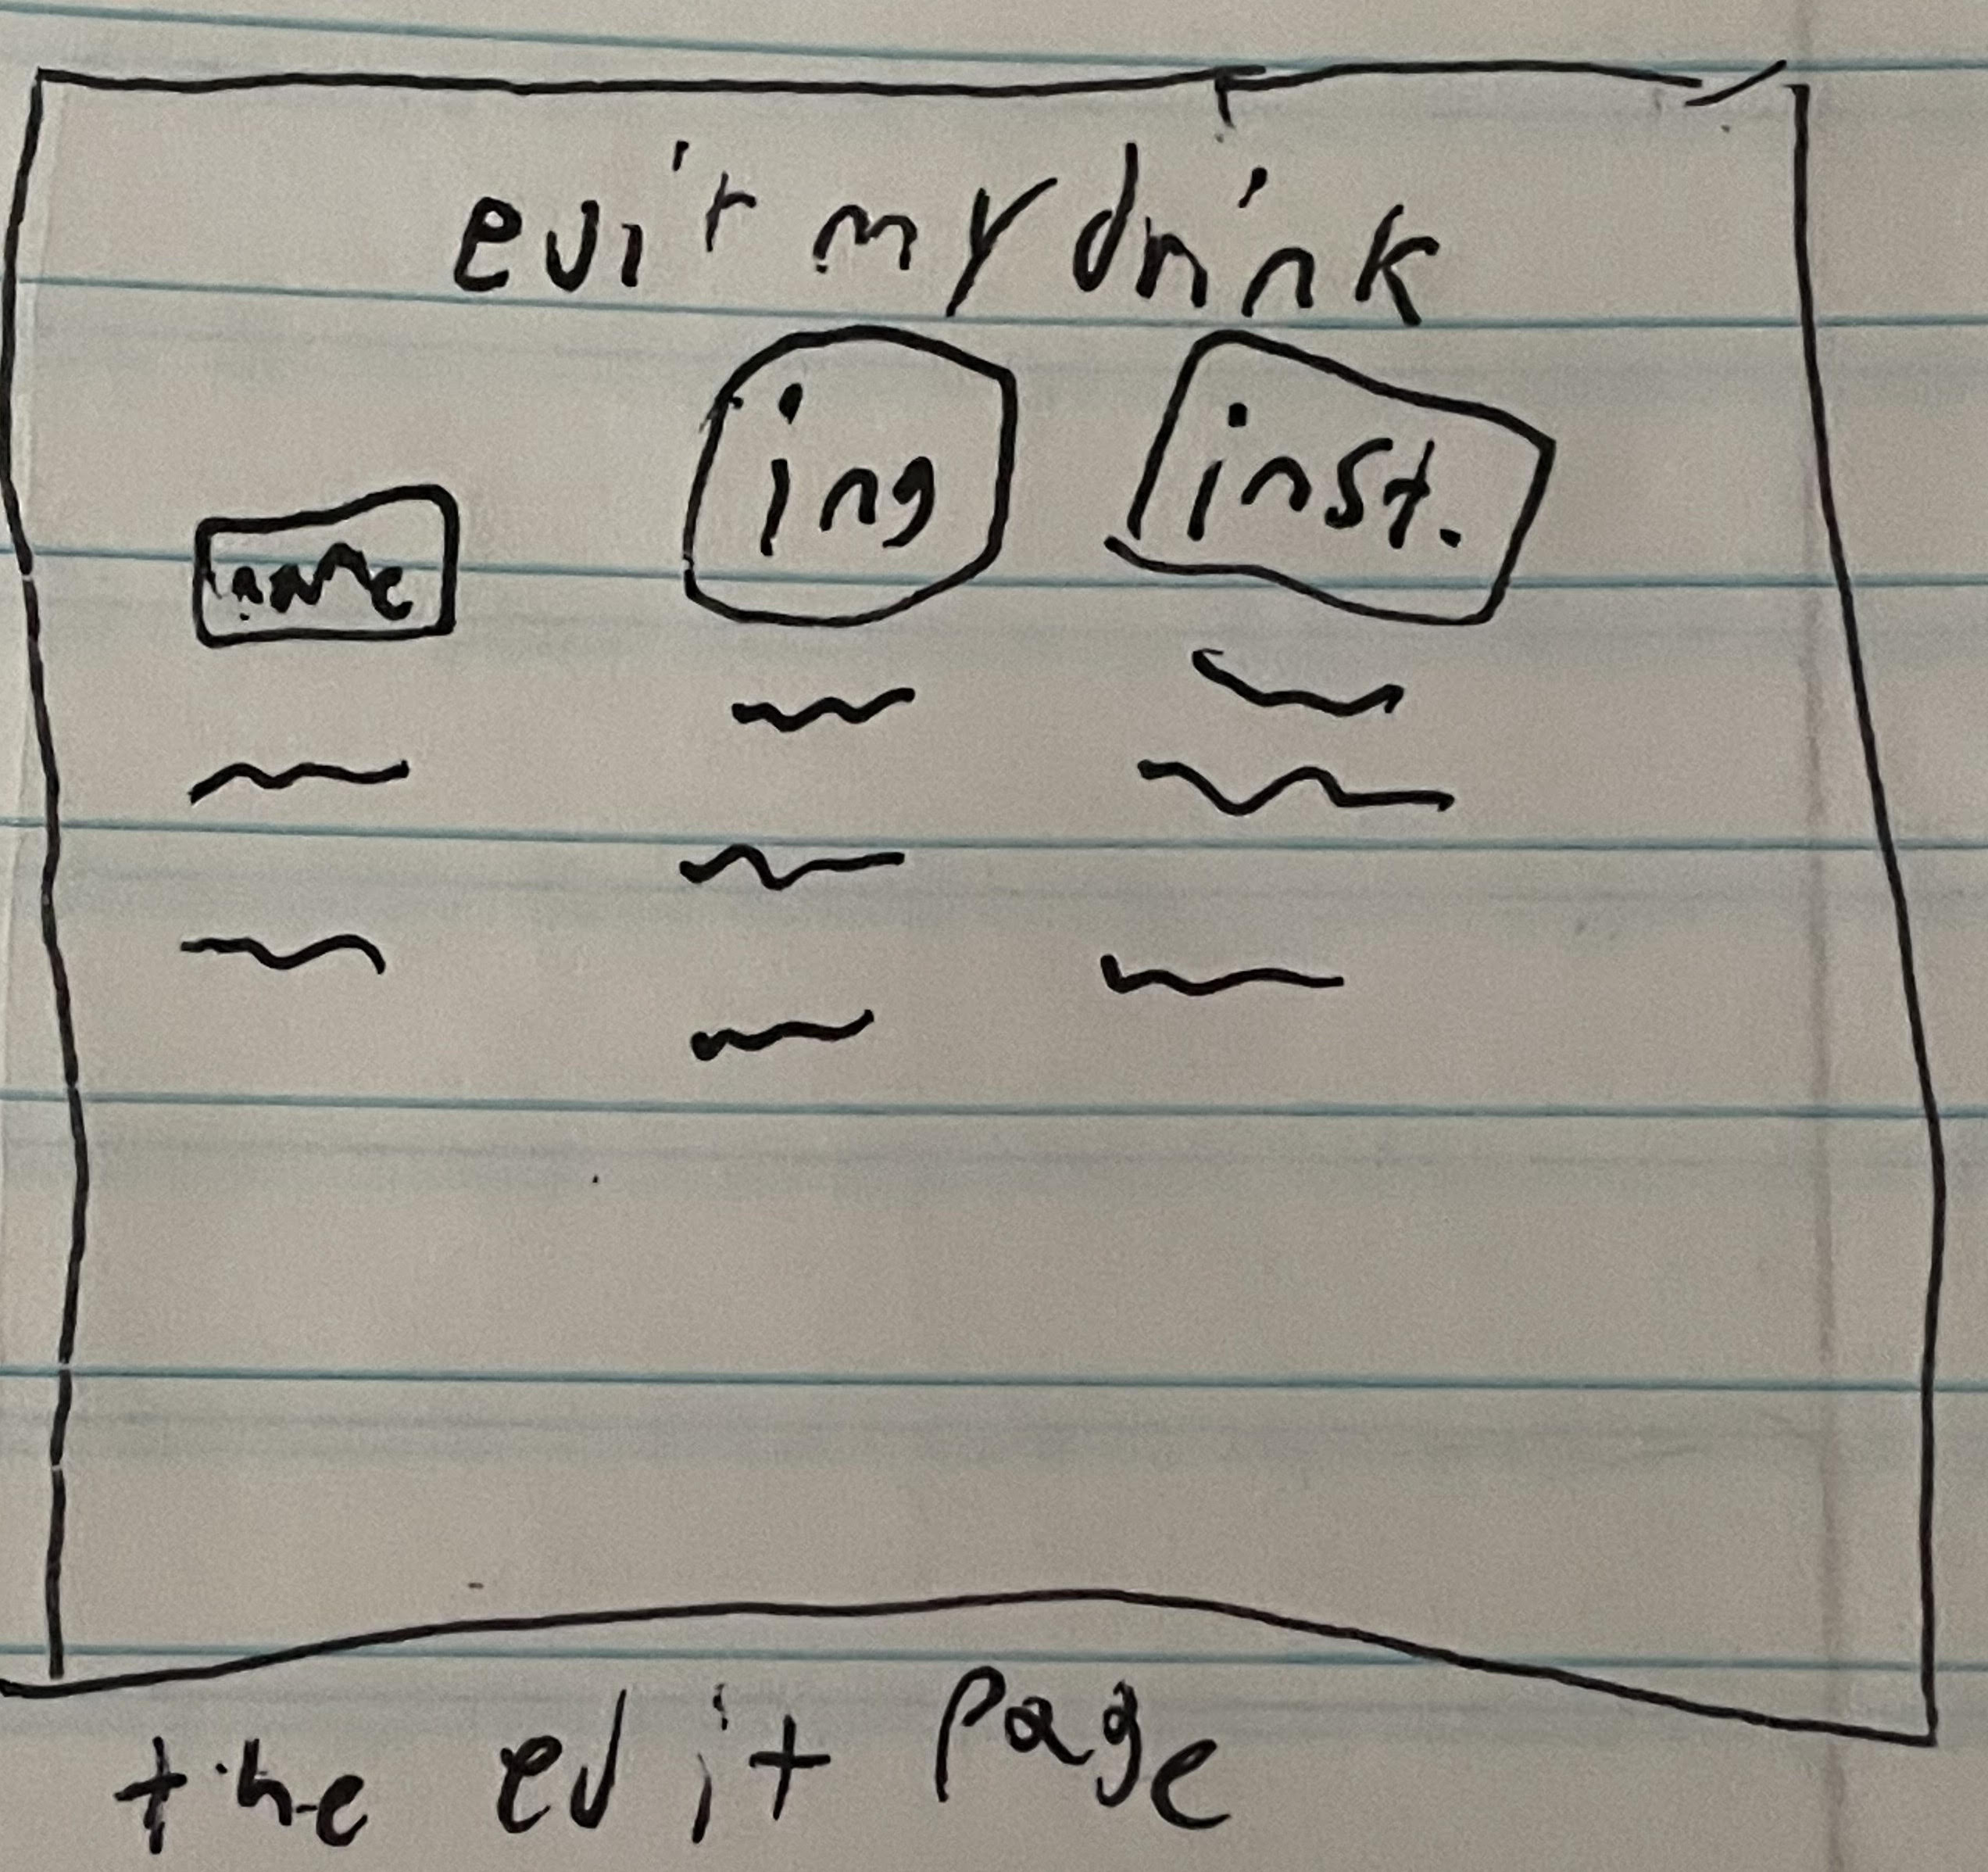 edit my drink
name ing inst.
the edit page